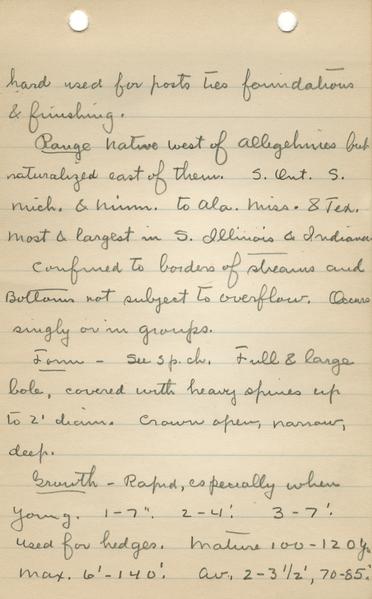 hard used for posts ties foundations
& finishing.
Range native west of alleghenies but
naturalized east of them. S. Ont. S.
Mich. & Minn. to Ala. Miss. & Tex.
Most & largest in S. Illinois & Indiana
Confined to borders of streams and
Bottoms not subject to overflow. Occurs
singly or in groups.
Form - See sp. ch. Full & large
bole, covered with heavy spines up
to 2' diam. Crown open, narrow,
deep.
Growth - Rapid, especially when
young. 1-7". 2-4'. 3-7'.
Used for hedges. Mature 100-120y.
Max. 6'-140'. Av. 2-3½', 70-85'.